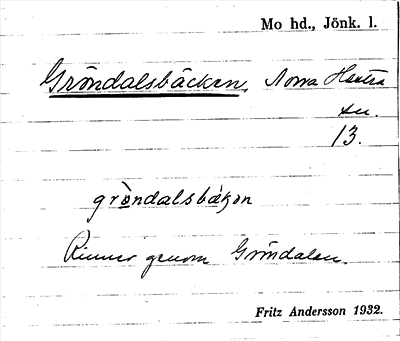 Mo hd., Jönk. l.
Gröndalsbäcken, Norra Hestra
sn.
13.
gröndalsbäkən
Rinner genom Gröndalen.
Fritz Andersson 1932.